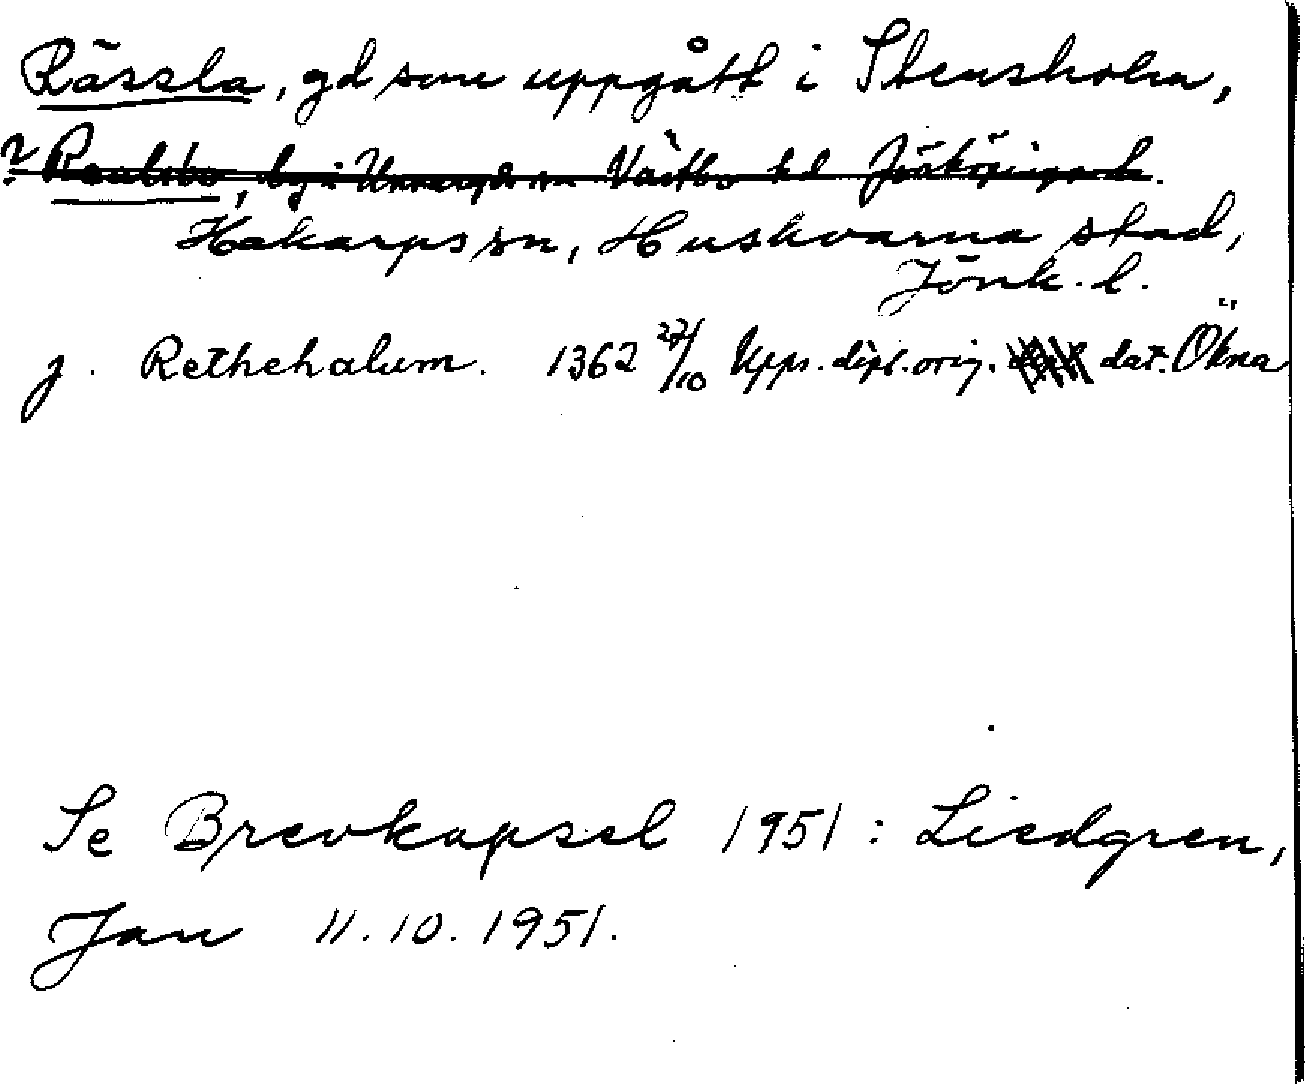 Rässla, gd som uppgått i Stensholm,
? Raalsbo, by i Unnaryds sn Västbo hd Jönköpings l.
Hakarps sn, Huskvarna stad,
Jönk. l.
j. Rethehalum. 1362 27/10 Upps. dipl. orig. dat. Ökna
Se Brevkapsel 1951: Liedgren,
Jan 11.10.1951.